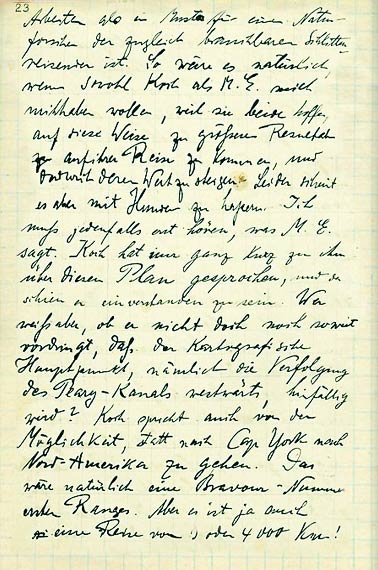 23
Arbeiten also ein Muster für einen Natur-
forscher der zugleich brauchbarer Schlitten-
reisender ist. So wäre es natürlich,
wenn sowohl Koch als M. E. mich
mithaben wollen, weil sie beide hoffen,
auf diese Weise zu größeren Resultaten
auf ihrer Reise zu kommen, und
dadurch deren Wert zu steigen. Leider scheint
es aber mit Hunden zu hapern. Ich
muß jedenfalls erst hören, was M. E.
sagt. Koch hat nur ganz kurz zu ihm
über diesen Plan gesprochen, und er
schien einverstanden zu sein. Wer
weiß aber, ob er nicht doch noch soweit
vordringt, daß der kartografische
Hauptpunkt, nämlich die Verfolgung
des Peary-Kanals westwärts, hinfällig
wird? Koch spricht auch von der
Möglichkeit, statt nach Cap York nach
Nord-Amerika zu gehen. Das
wäre natürlich eine Bravour-Nummer
ersten Ranges. Aber es ist ja auch
eine Reise von oder 4000 Km!